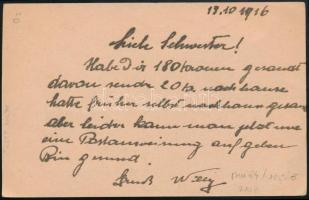 19.10.1916
Liebe Schwester!
Habe Dir 180 Kronen gesandt
davon sende 20 K nach hause
hatte früher selbst nachhaus
aber leider kann man jetzt nur
eine Postanweisung aufgeben
Bin gesund.
Gruß